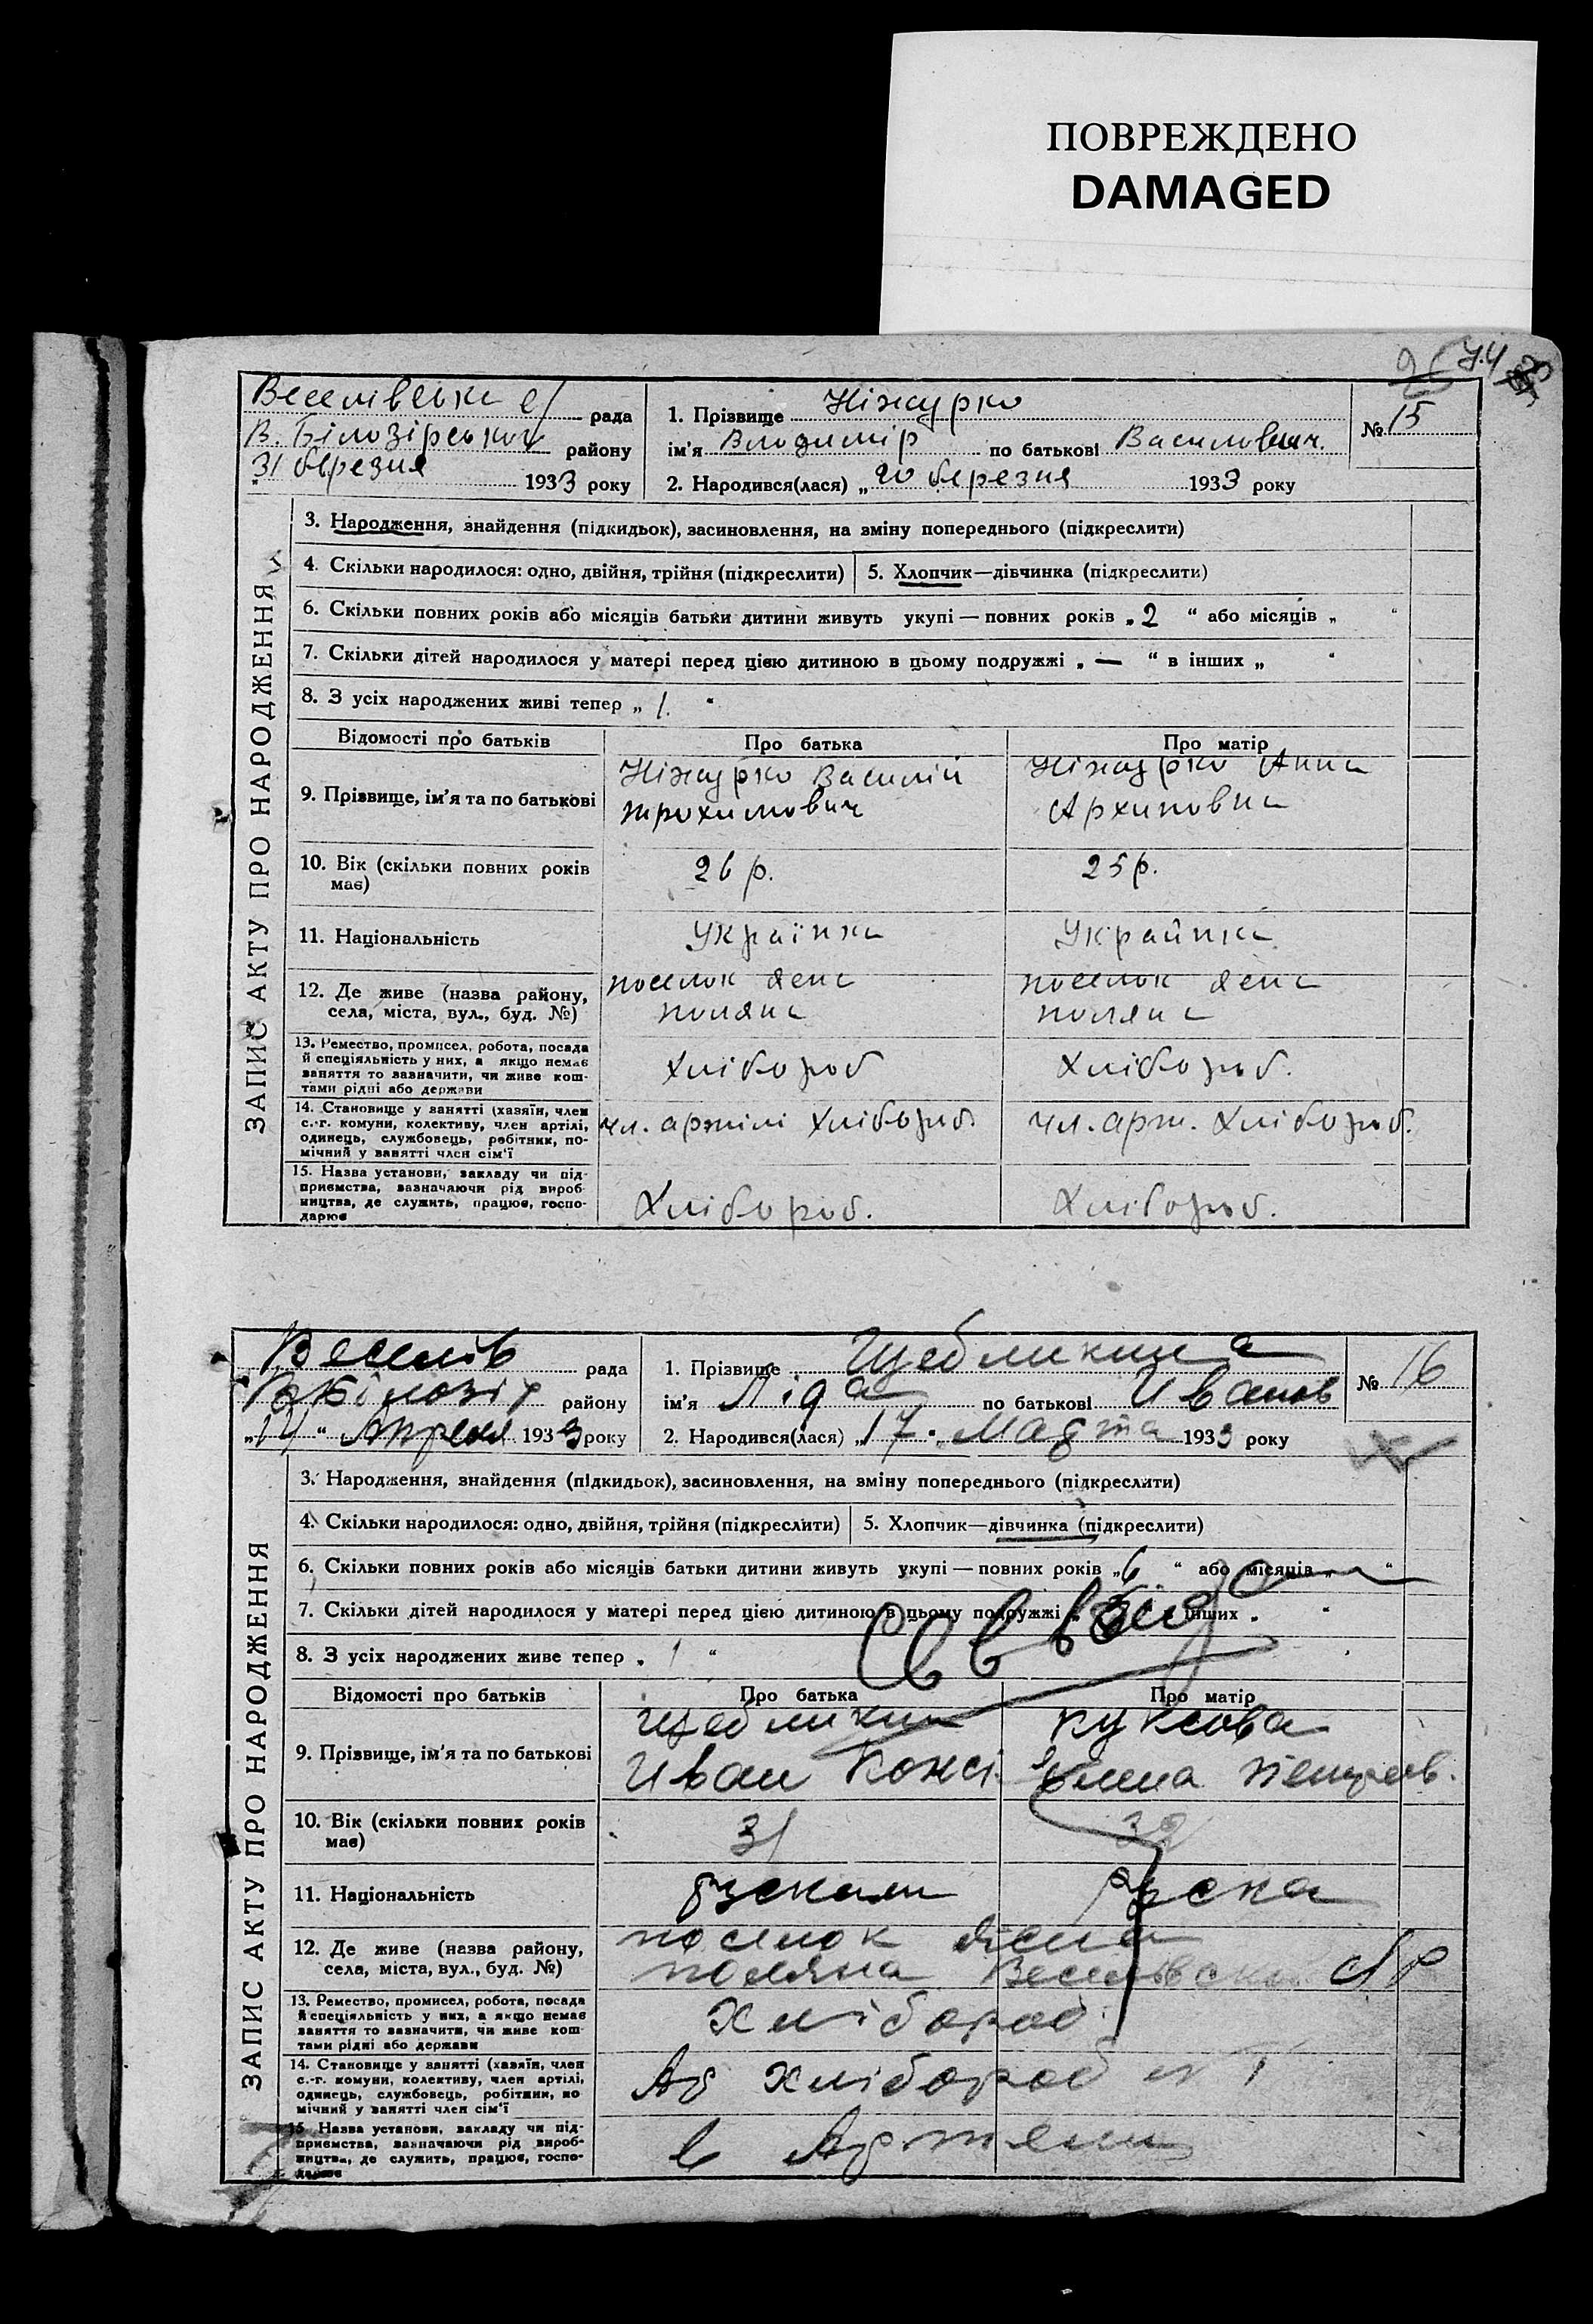 ПОВРЕЖДЕНО
DAMAGED
Веселівська с/ рада
В. Білозірського району
31 березня 1933 року
1. Прізвище Ніжурко
ім'я Владимір по батькові Василович.
2. Народився(лася) „20 березня 1933 року
№ 15
ЗАПИС АКТУ ПРО НАРОДЖЕННЯ
3. Народження, знайдення (підкидьок), засиновлення, на зміну попереднього (підкреслити)
4. Скільки народилося: одно, двійня, трійня (підкреслити) 5. Хлопчик—дівчинка (підкреслити)
6. Скільки повних років або місяців батьки дитини живуть укупі — повних років „2 “ або місяців „ “
7. Скільки дітей народилося у матері перед цією дитиною в цьому подружжі „ — “ в інших „ “
8. З усіх народжених живі тепер „ 1. “
Відомості про батьків Про батька Про матір
9. Прізвище, ім'я та по батькові
Ніжурко Василій
трохимович
Ніжурко Анна
Архиповна
10. Вік (скільки повних років має) 26 р. 25 р.
11. Національність Українка Українка
12. Де живе (назва району, села, міста, вул., буд. №)
поселок
поляна
поселок
поляна
13. Ремество, промисел, робота, посада
й спеціяльність у них, а якщо немає
заняття то зазначити, чи живе кош-
тами рідні або держави
Хлібороб Хлібороб.
14. Становище у занятті (хазяїн, член
с.-г. комуни, колективу, член артілі,
одинець, службовець, робітник, по-
мічний у занятті член сім'ї
чл. артілі Хлібороб. чл. арт. Хлібороб.
15. Назва установи, закладу чи під-
приємства, зазначаючи рід вироб-
ництва, де служить, працює, госпо-
дарює
Хлібороб. Хлібороб.
Веселів рада
В Білозір району
„14“ Апреля 1933 року
1. Прізвище Щебликина
ім'я Ліда по батькові Иванов
2. Народився(лася) „17“ Марта 1933 року
№ 16
ЗАПИС АКТУ ПРО НАРОДЖЕННЯ
3. Народження, знайдення (підкидьок), засиновлення, на зміну попереднього (підкреслити)
4. Скільки народилося: одно, двійня, трійня (підкреслити) 5. Хлопчик—дівчинка (підкреслити)
6. Скільки повних років або місяців батьки дитини живуть укупі — повних років „6 “ або місяців „ “
7. Скільки дітей народилося у матері перед цією дитиною в цьому подружжі „ інших „ “
8. З усіх народжених живе тепер „ 1 “
Відомості про батьків Про батька Про матір
9. Прізвище, ім'я та по батькові
Щебликин
Иван
Куксова
10. Вік (скільки повних років має) 31
11. Національність руска
12. Де живе (назва району, села, міста, вул., буд. №)
поселок
поляна
13. Ремество, промисел, робота, посада
й спеціяльність у них, а якщо немає
заняття то зазначити, чи живе кош-
тами рідні або держави
Хлібороб
14. Становище у занятті (хазяїн, член
с.-г. комуни, колективу, член артілі,
одинець, службовець, робітник, по-
мічний у занятті член сім'ї
Ар Хлібороб
15. Назва установи, закладу чи під-
приємства, зазначаючи рід вироб-
ництва, де служить, працює, госпо-
дарює
в Артели